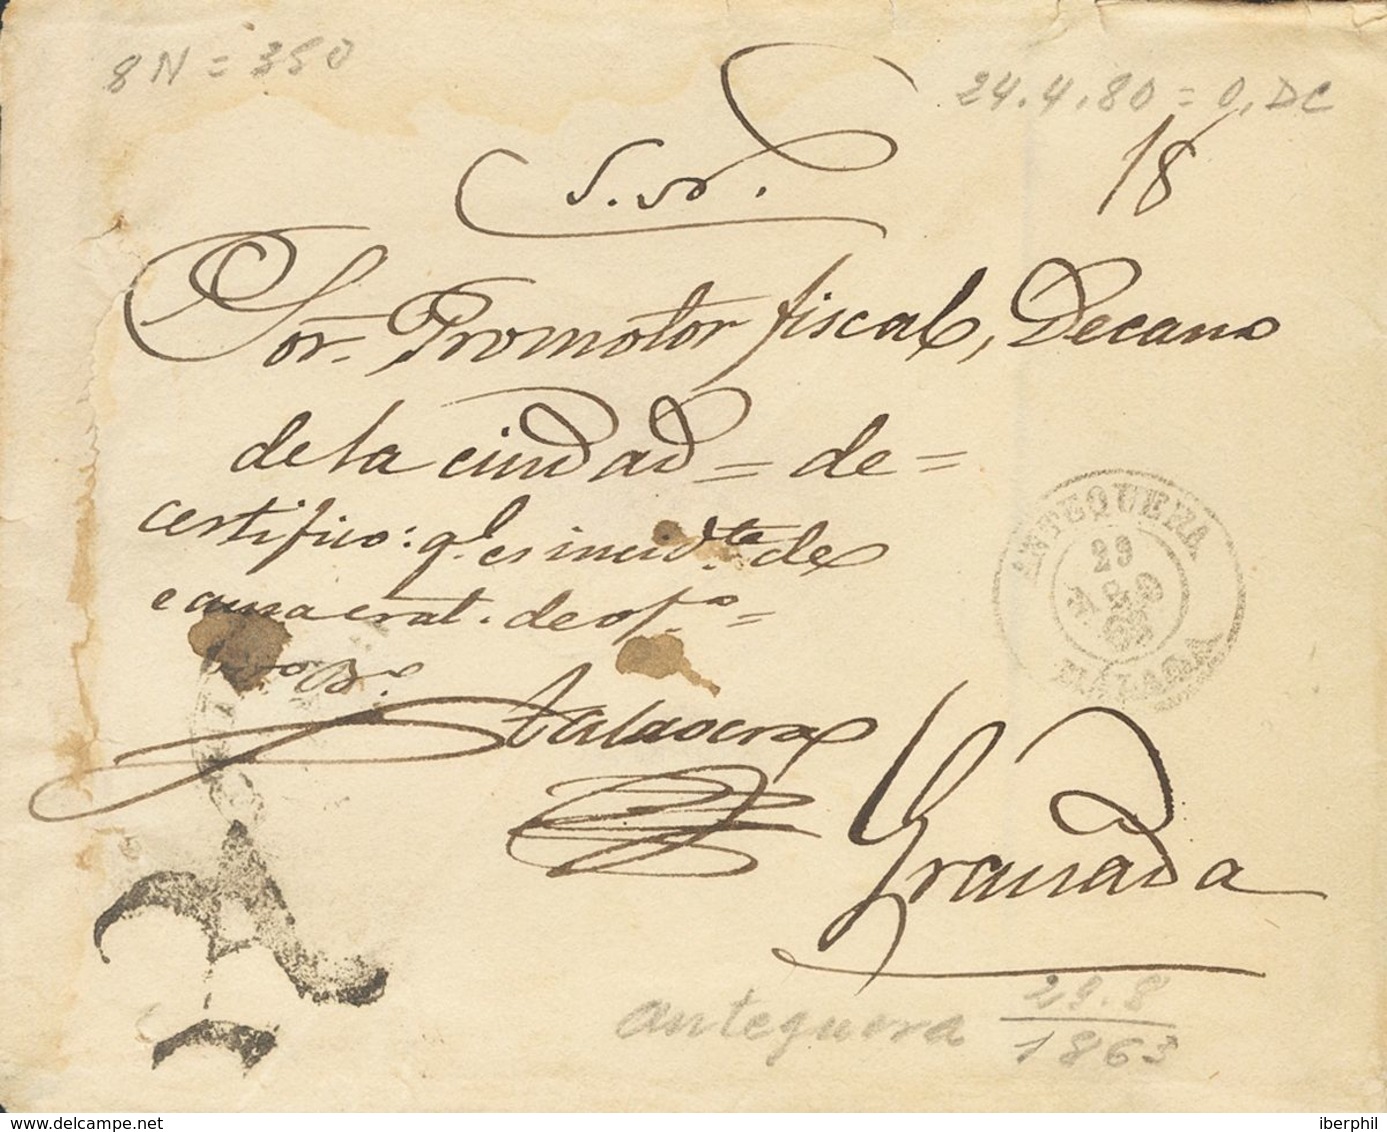 8 N = 350
24.4.80 = 0, DC
18
S. N.
Sor. Promotor fiscal, Decano
de la ciudad = de =
certifico: ql. es incidte. de
causa crat. de ofo. =
Talavera
Granada
ANTEQUERA
29
AGO
63
MALAGA
antequera 29.8
1863
delcampe.net
iberphil